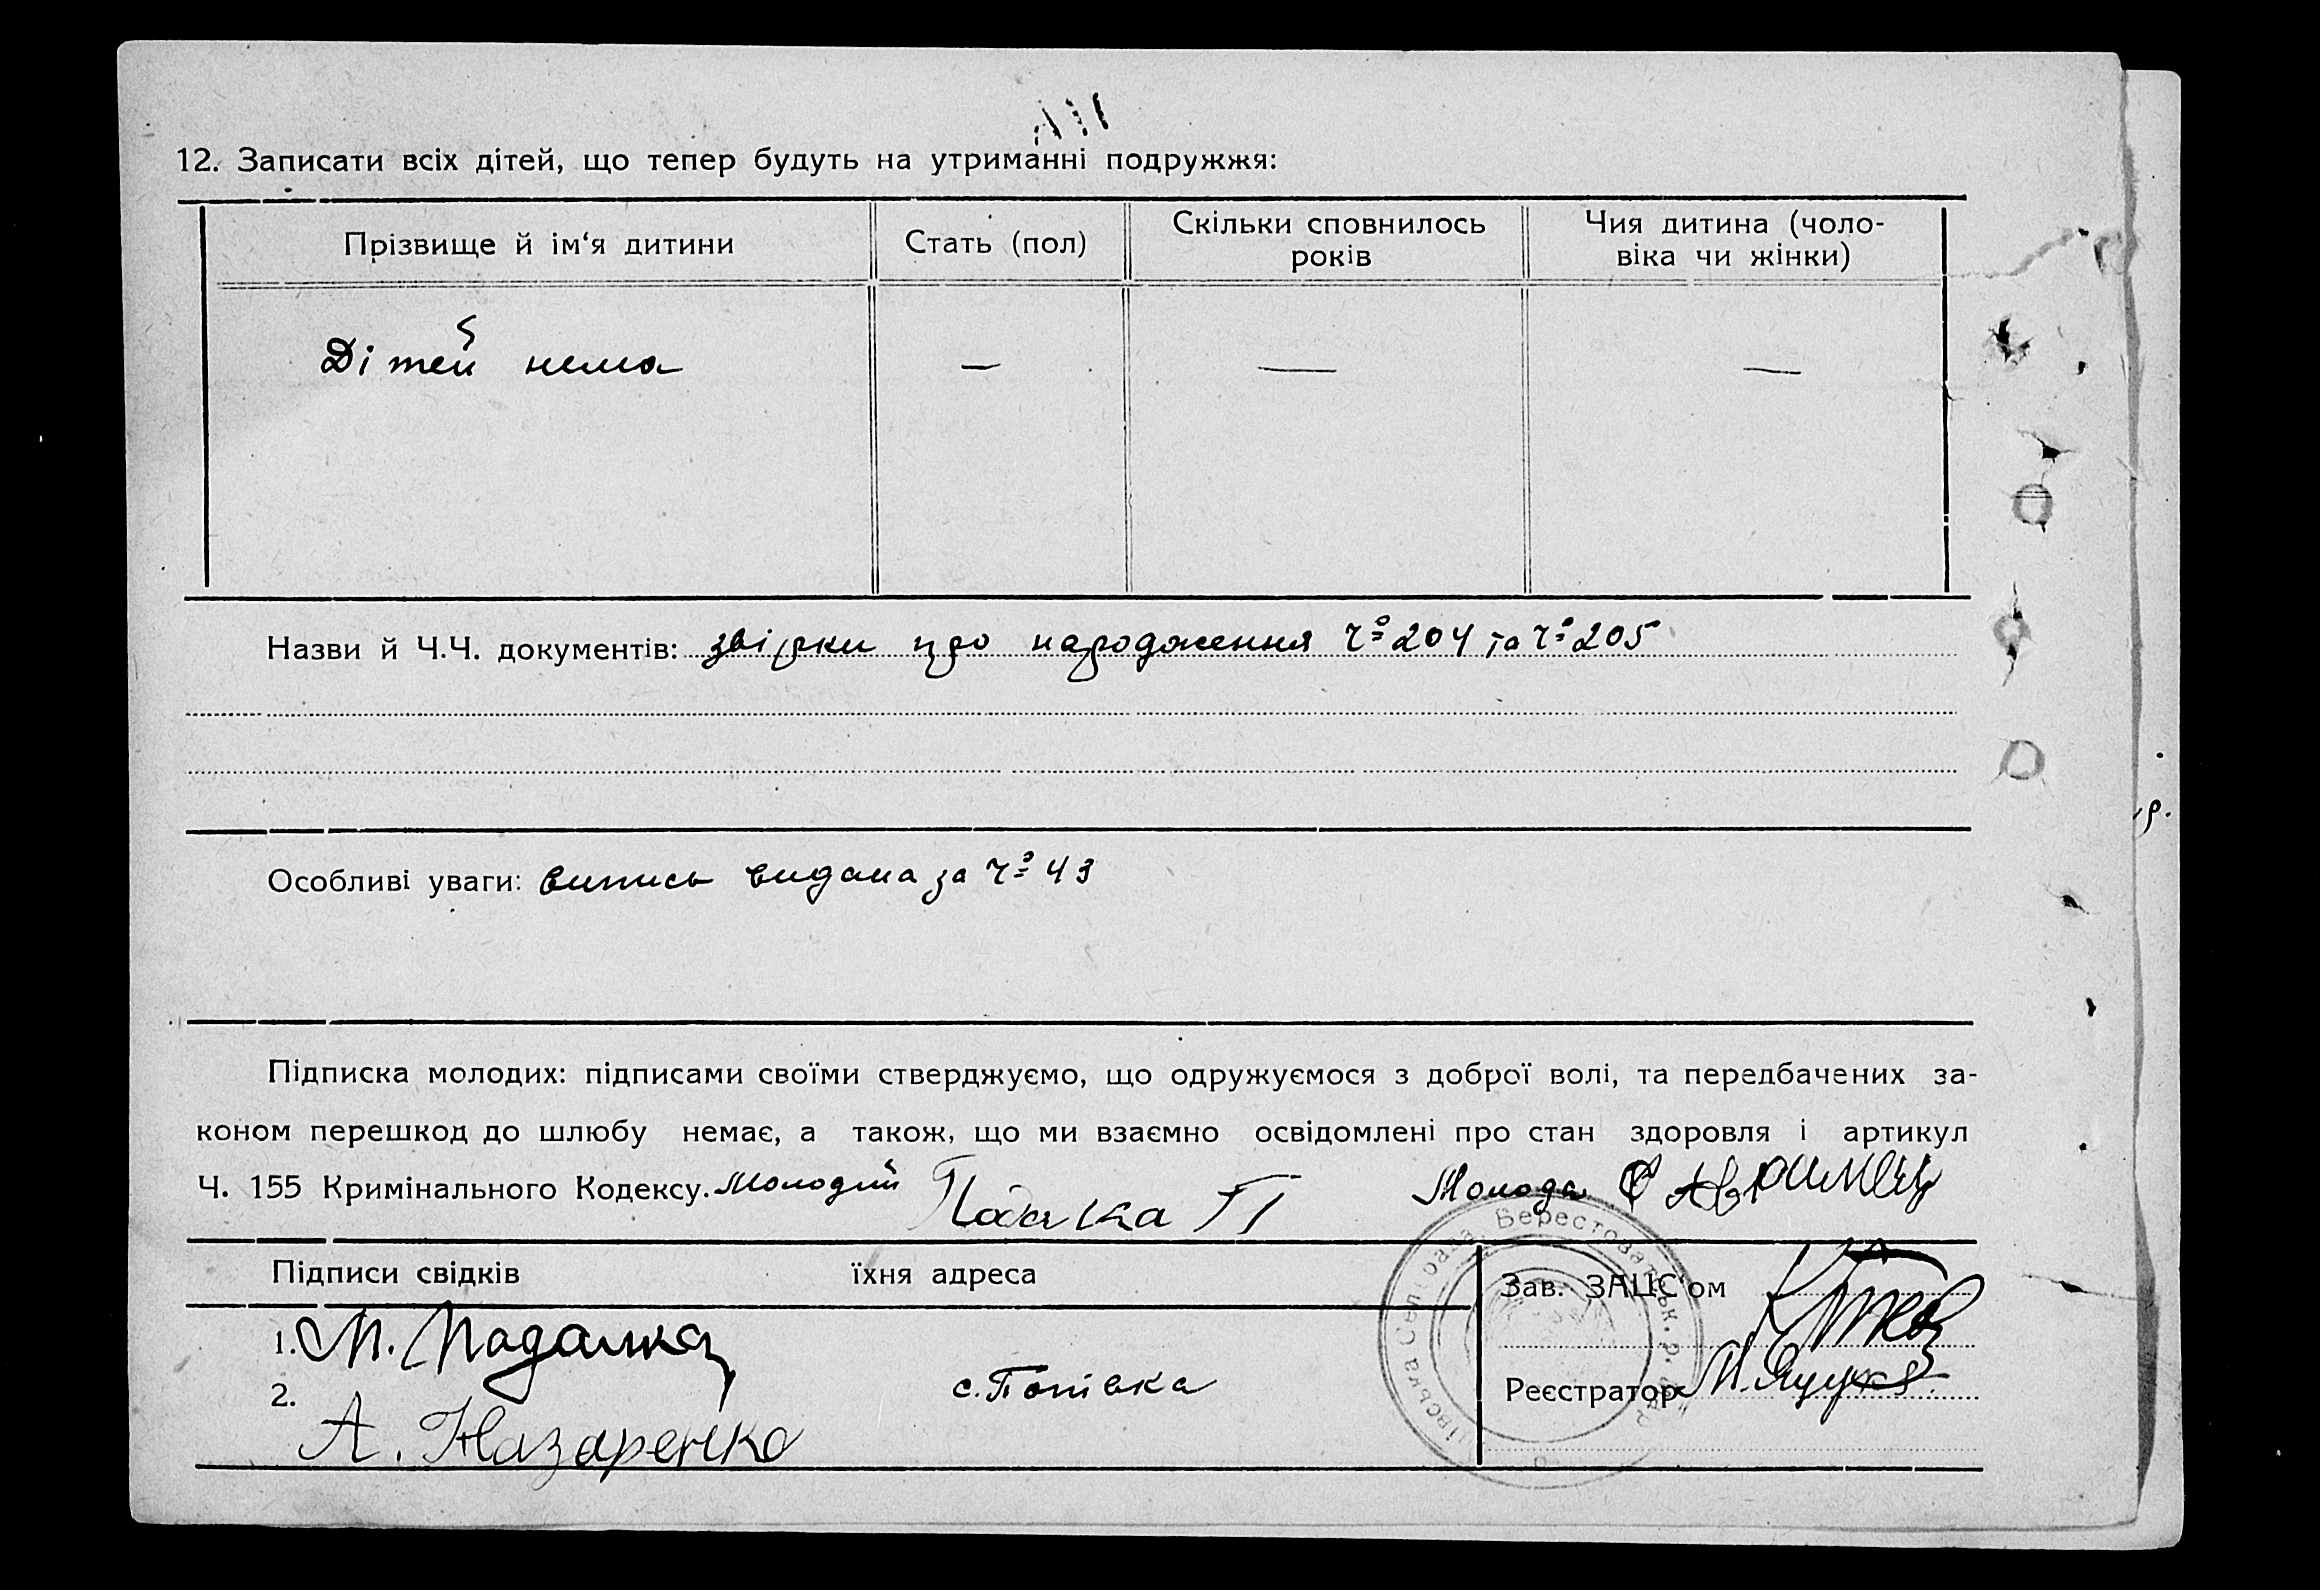 12. Записати всіх дітей, що тепер будуть на утриманні подружжя:
Прізвище й ім‘я дитини
Стать (пол)
Скільки сповнилось
років
Чия дитина (чоло-
віка чи жінки)
Дітей нема — — —
Назви й Ч.Ч. документів: звірки про народження Ч० 204 та Ч० 205
Особливі уваги: випись видана за Ч० 43
Підписка молодих: підписами своїми стверджуємо, що одружуємося з доброї волі, та передбачених за-
коном перешкод до шлюбу немає, а також, що ми взаємно освідомлені про стан здоровля і артикул
Ч. 155 Кримінального Кодексу. Молодий Падалка П Молода
Підписи свідків їхня адреса
Зав. ЗАЦС‘ом
1. М. Падалка
2. с. Попівка
А. Назаренко
Реєстратор
Сел рада, Берестоватськ. р.